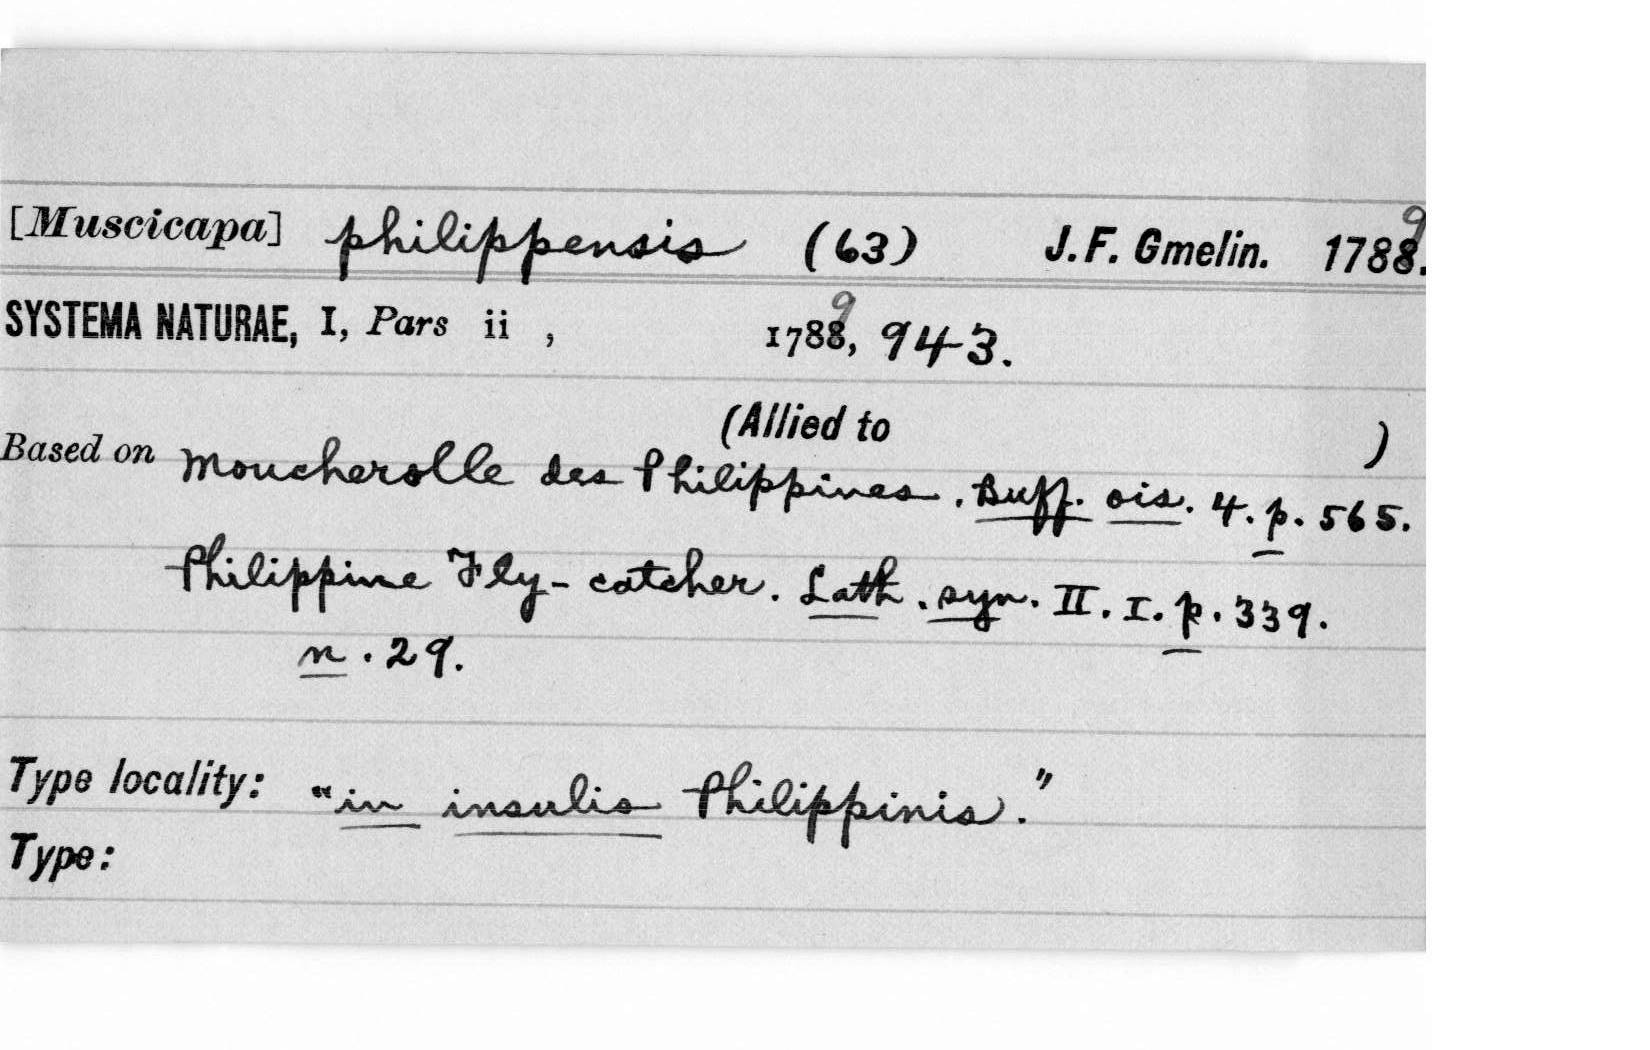 [Muscicapa] philippensis (63) J. F. Gmelin. 1788. 9
SYSTEMA NATURAE, I, Pars ii , 1788, 9 943.
(Allied to )
Based on Moucherolle des Philippines. Buff. ois. 4. p. 565.
Philippine Fly-catcher. Lath. syn. II. I. p. 339.
n. 29.
Type locality: "in insulis Philippinis."
Type: